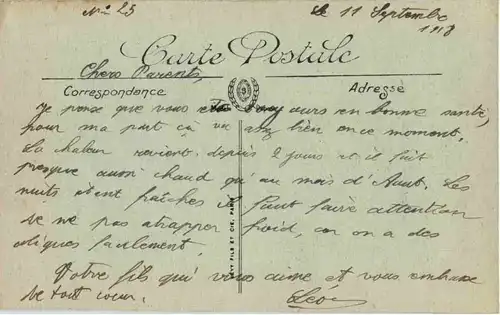 No 23
Le 11 Septembre
1918
Carte Postale
Chers Parents,
Correspondance
Adressé
Je pense que vous etes toujours en bonne santé,
pour ma part ça va assez bien en ce moment.
La chaleur revient depuis 2 jours et il fait
presque aussi chaud qu'au mois d'Aout. Les
nuits étant fraîches il faut faire attention
de ne pas attrapper froid, car on a des
coliques facilement.
Votre fils qui vous aime et vous embrasse
de tout coeur.
Léon
LEVY FILS ET CIE, PARIS